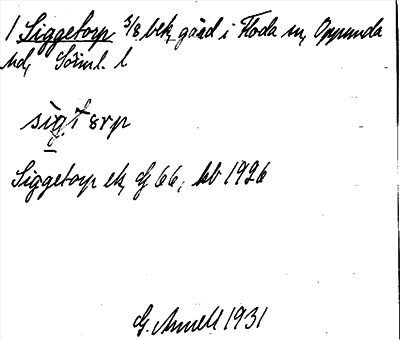 1 Siggetorp 3/8 bek. gård i Floda sn, Oppunda
hd, Sörml. l
sìg̀tərp
Siggetorp ek G 66; hb 1926
G. Amell 1931